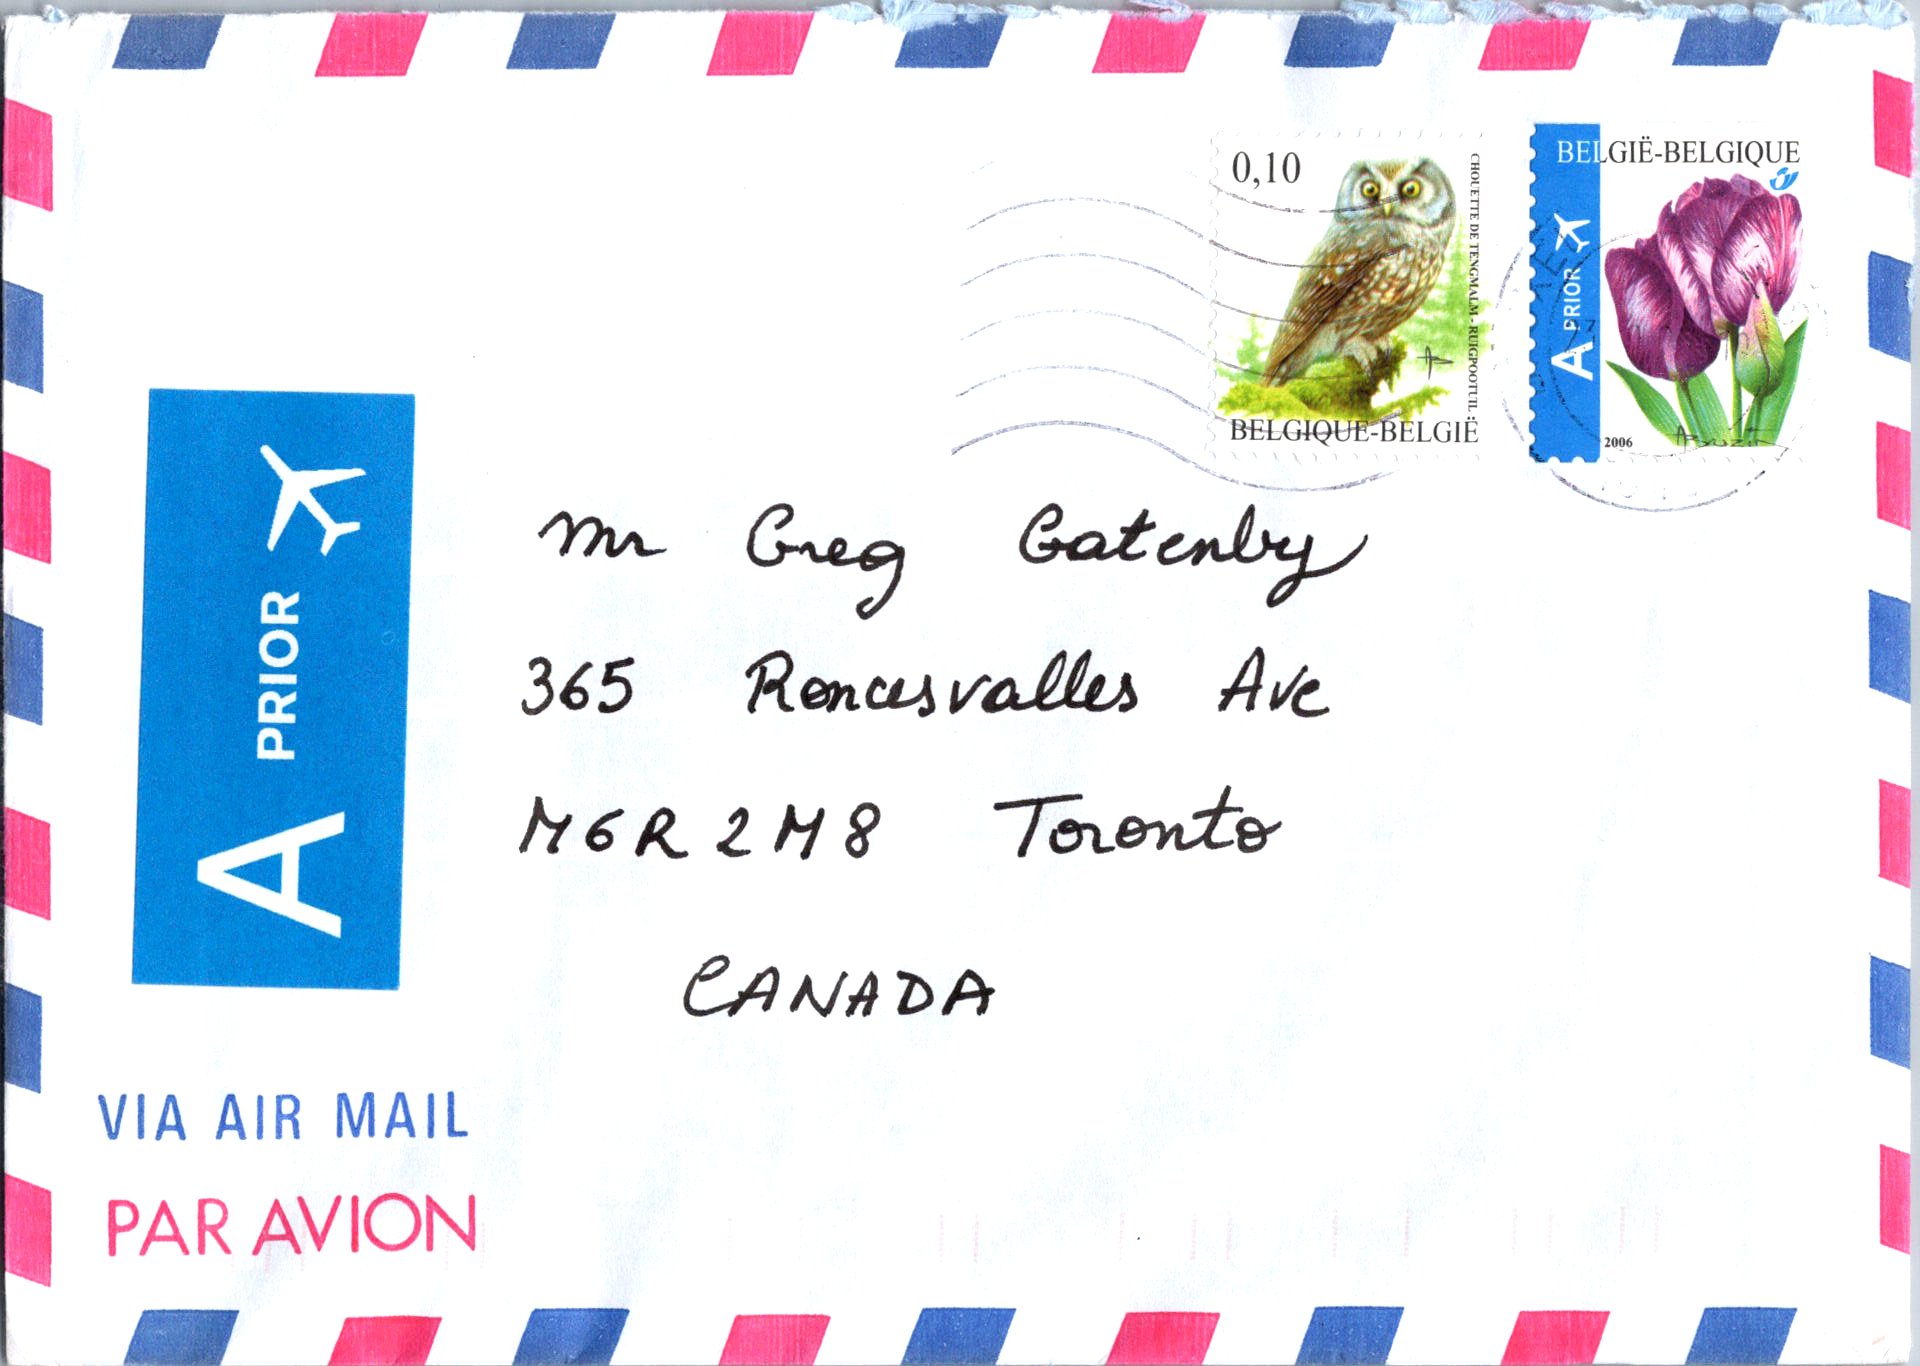 0,10
CHOUETTE DE TENGMALM - RUIGPOOTUIL
BELGIQUE-BELGIË
BELGIË-BELGIQUE
A PRIOR
2006
A PRIOR
Mr Greg Gatenby
365 Roncesvalles Ave
M6R 2M8 Toronto
CANADA
VIA AIR MAIL
PAR AVION